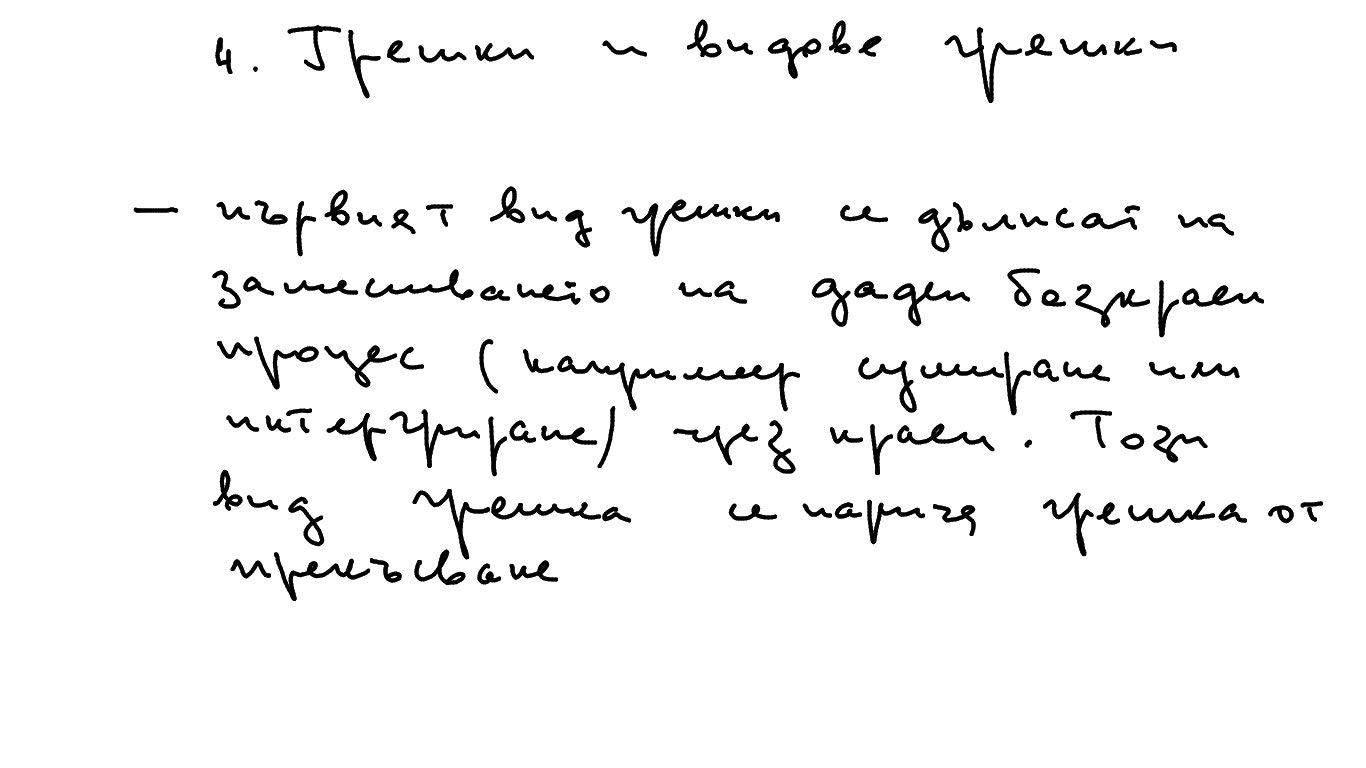 4. Грешки и видове грешки
– първият вид грешки се дължат на
заместването на даден безкраен
процес (например сумиране или
интегриране) чрез краен. Този
вид грешка се нарича грешка от
прекъсване